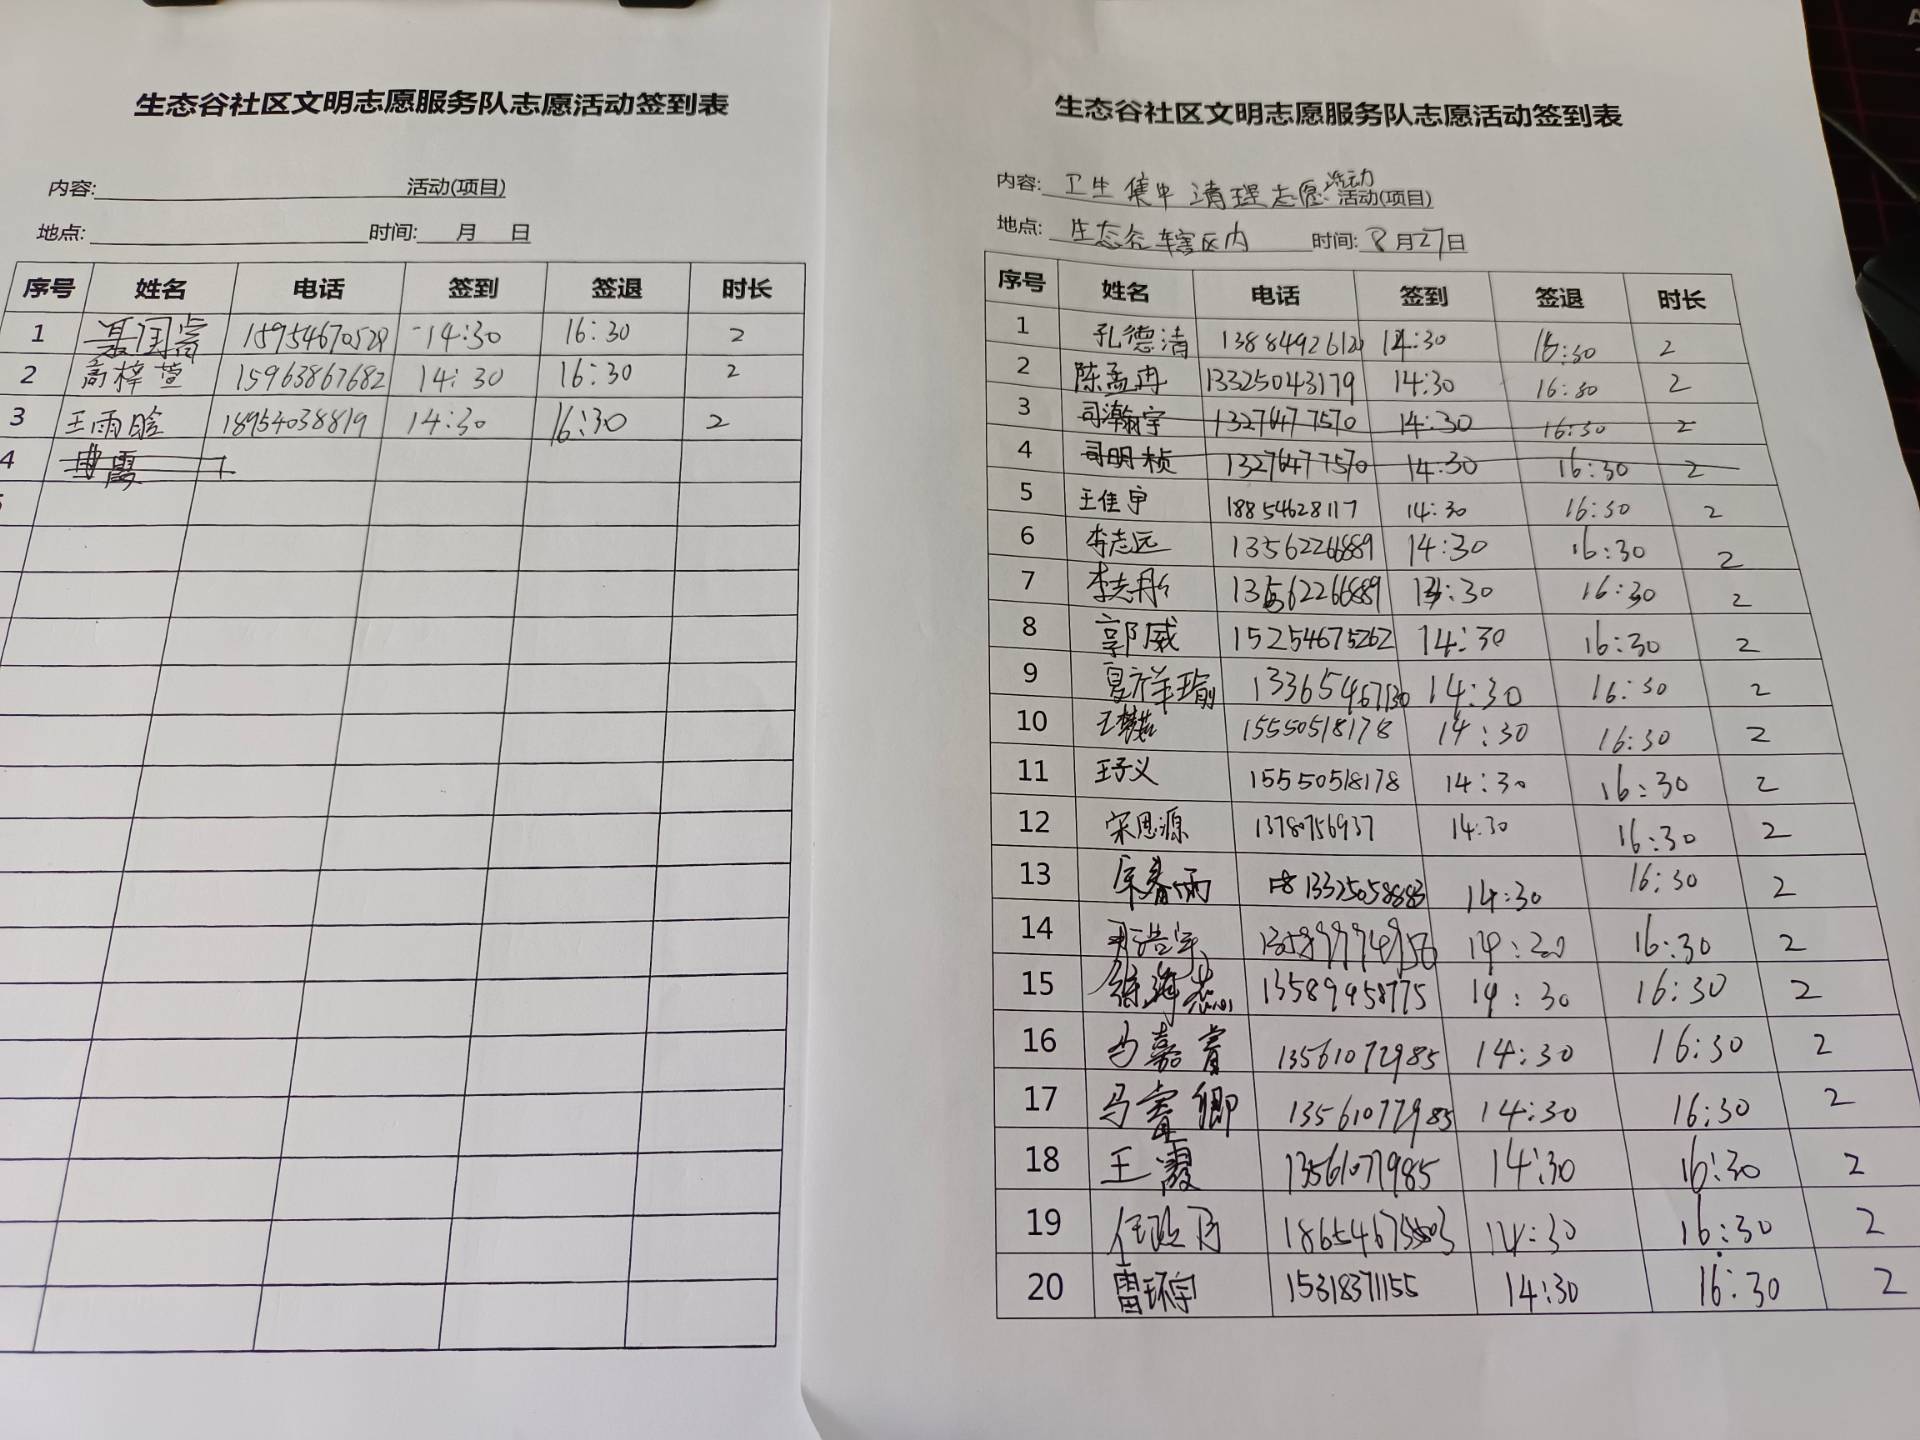 生态谷社区文明志愿服务队志愿活动签到表
内容: 活动(项目)
地点: 时间: 月 日
序号 姓名 电话 签到 签退 时长
1 15954670528 14:30 16:30 2
2 高梓萱 15963867682 14:30 16:30 2
3 王雨晗 18954038819 14:30 16:30 2
4
生态谷社区文明志愿服务队志愿活动签到表
内容: 卫生集中清理志愿活动 活动(项目)
地点: 生态谷辖区内 时间: 8月27日
序号 姓名 电话 签到 签退 时长
1 孔德清 13884926120 14:30 16:30 2
2 陈孟冉 13325043179 14:30 16:30 2
3 司瀚宇 13276477570 14:30 16:30 2
4 司明桢 13276477570 14:30 16:30 2
5 王佳宇 18854628117 14:30 16:30 2
6 李志远 13562266889 14:30 16:30 2
7 李志彤 13562266889 14:30 16:30 2
8 郭威 15254675262 14:30 16:30 2
9 夏祥瑜 13365467130 14:30 16:30 2
10 15550518178 14:30 16:30 2
11 王子义 15550518178 14:30 16:30 2
12 宋思源 13780756937 14:30 16:30 2
13 13325058883 14:30 16:30 2
14 16:30 2
15 13589958775 14:30 16:30 2
16 马嘉睿 13561072985 14:30 16:30 2
17 马睿卿 13561077985 14:30 16:30 2
18 王霞 13561077985 14:30 16:30 2
19 14:30 16:30 2
20 雷环宇 15318371155 14:30 16:30 2